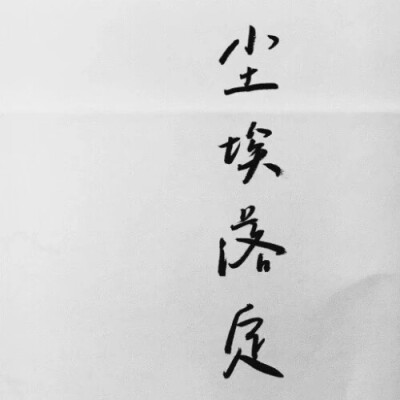 尘埃落定